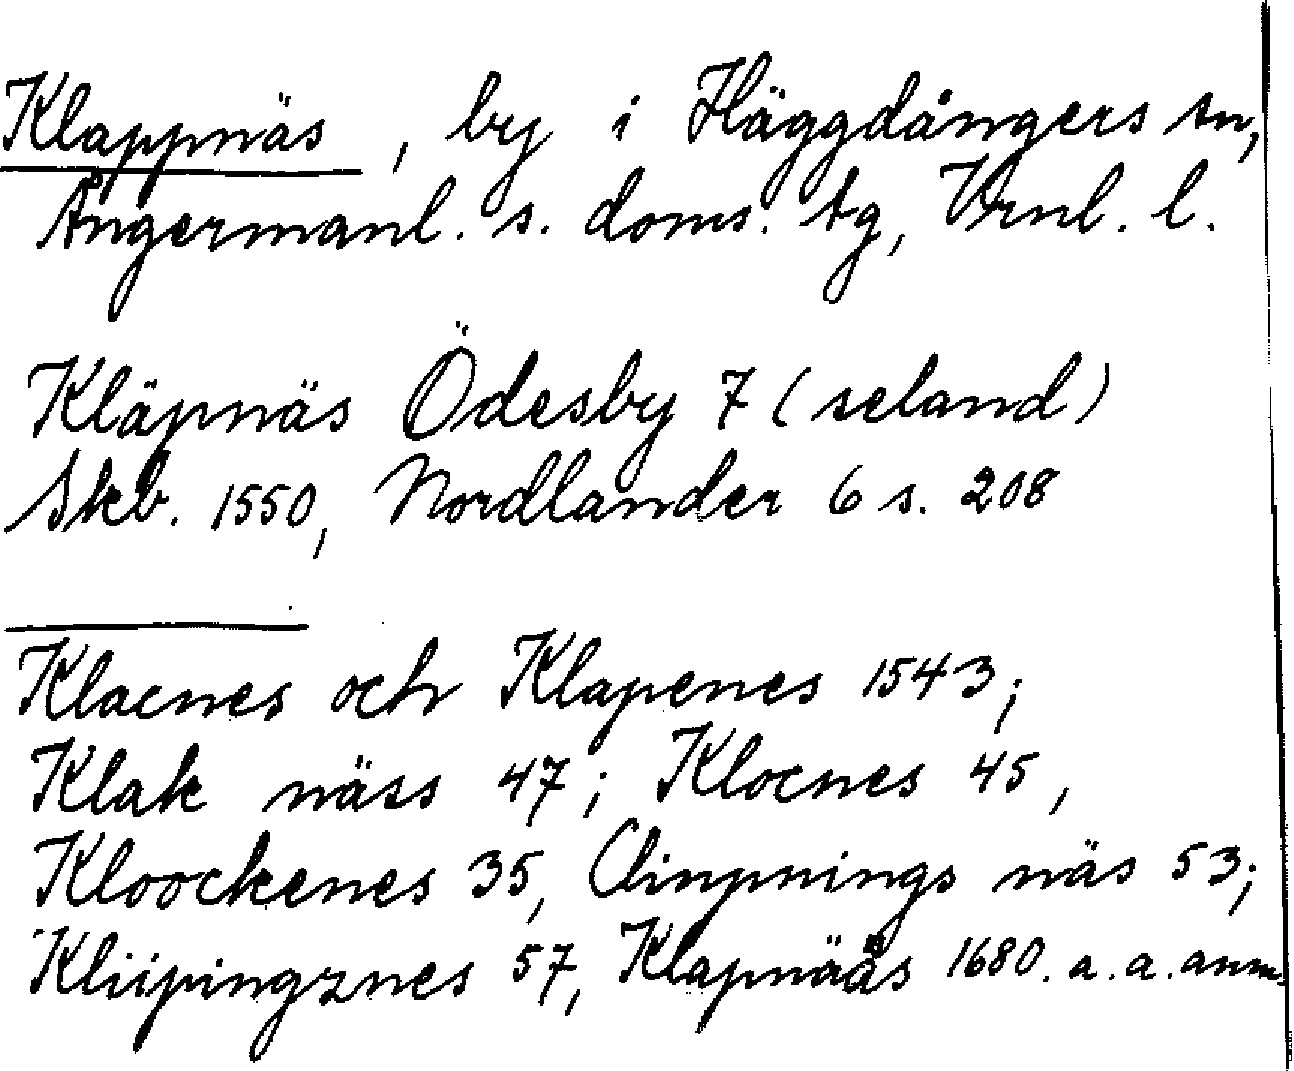 Klappnäs, by i Häggdångers sn,
Ångermanl. s. doms. tg, Vrnl. l.
Kläpnäs Ödesby 7 (seland)
Skb. 1550, Nordlander 6 s. 208
Klacnes och Klapenes 1543;
Klak näss 47; Klocnes 45,
Kloockenes 35, Clinpnings näs 53;
Kliipingznes 57, Klapnääs 1680. a. a. anm.